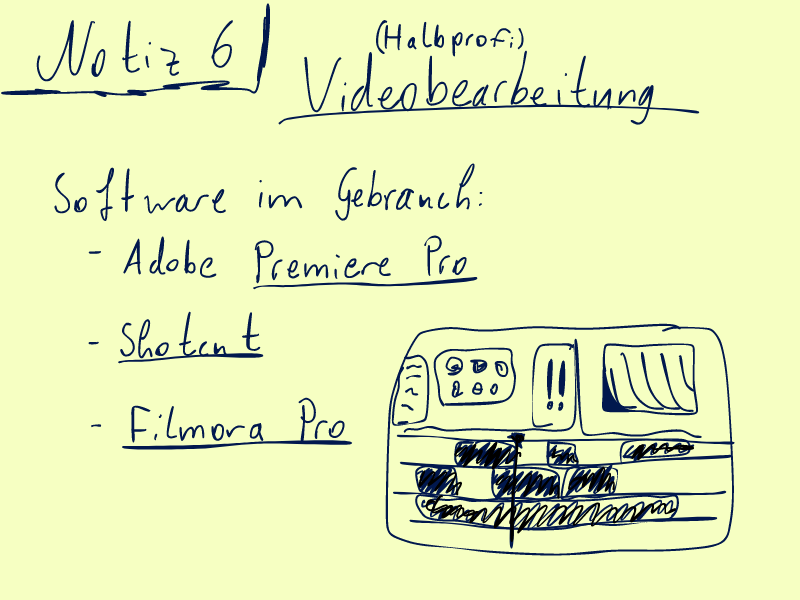 Notiz 6
(Halbprofi)
Videobearbeitung
Software im Gebrauch:
- Adobe Premiere Pro
- Shotcut
- Filmora Pro